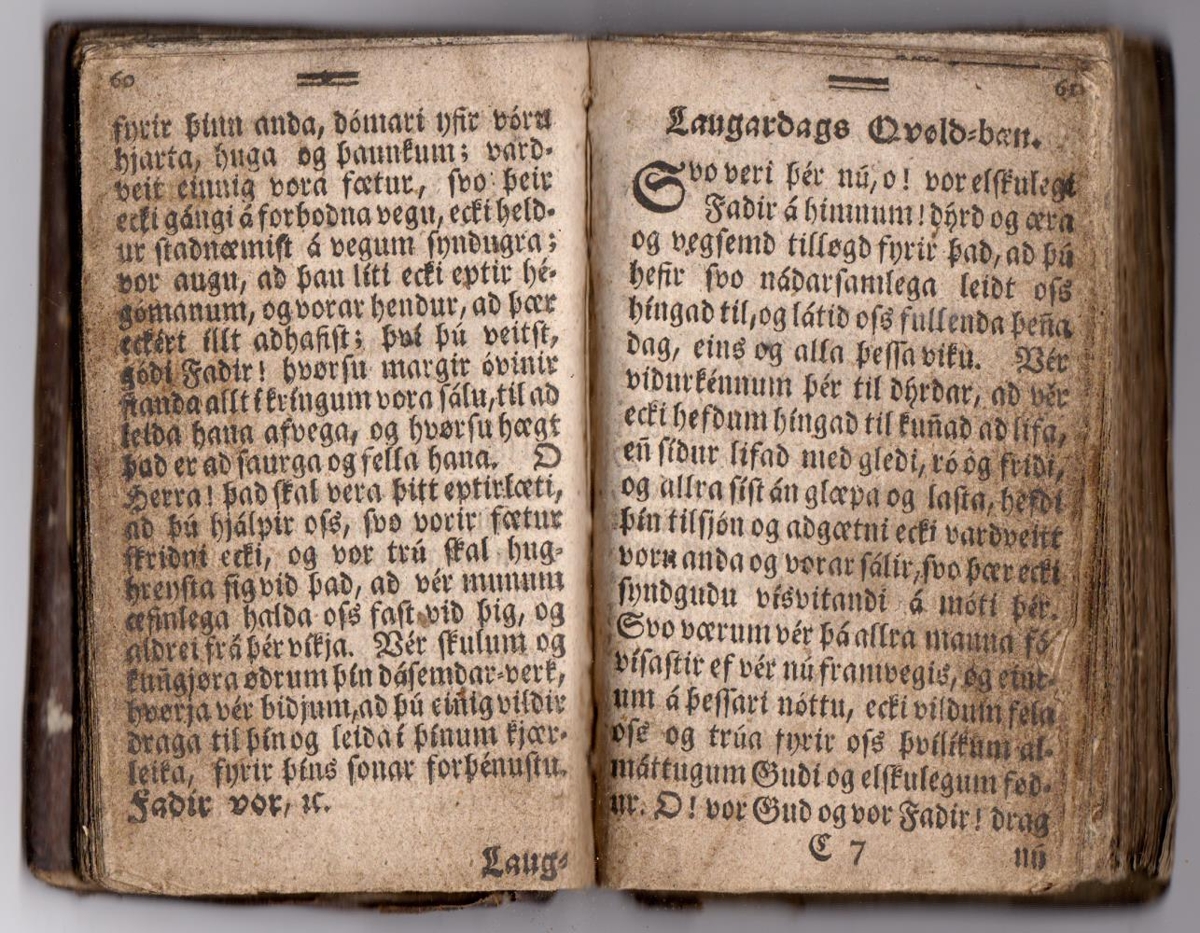 60
fyrir þinn anda, dómari yfir vórn
hjarta, huga og þaunkum; vard-
veit einnig vora fætur, svo þeir
ecki gángi á forbodna vegu, ecki held-
ur stadnæmist á vegum syndugra;
vor augu, ad þau líti ecki eptir hé-
gómanum, og vorar hendur, ad þær
eckért illt adhafist; því þú veitst,
gódi Fadir! hvørsu margir óvinir
standa allt í kríngum vora sálu, til ad
leida hana afvega, og hvørsu hægt
þad er ad saurga og fella hana. O
Herra! þad skal vera þitt eptirlæti,
ad þú hjálpir oss, svo vorir fætur
skridni ecki, og vor trú skal hug-
hreysta sig vid þad, ad vér munum
æfinlega halda oss fast vid þig, og
aldrei frá þér víkja. Vér skulum og
kun̄gjøra ødrum þín dásemdar-verk,
hvørja vér bidjum, ad þú ein̄ig vildir
draga til þín og leida í þínum kjær-
leika, fyrir þíns sonar forþénustu.
Fadir vor, ꝛc.
Laug-
61
Laugardags Qvøld-bæn.
Svo veri þér nú, o! vor elskulegi
Fadir á himnum! dýrd og æra
og vegsemd tilløgd fyrir þad, ad þú
hefir svo nádarsamlega leidt oss
híngad til, og látid oss fullenda þen̄a
dag, eins og alla þessa viku. Vér
vidurkénnum þér til dýrdar, ad vér
ecki hefdum híngad til kun̄ad ad lifa,
en̄ sídur lifad med gledi, ró og fridi,
og allra síst án glæpa og lasta, hefdi
þín tilsjón og adgætni ecki vardveitt
vorn anda og vorar sálir, svo þær ecki
syndgudu vísvitandi á móti þér.
Svo værum vér þá allra manna fá-
vísastir ef vér nú framvegis, og einк-
um á þessari nóttu, ecki vildum fela
oss og trúa fyrir oss þvílíkum al-
máttugum Gudi og elskulegum fød-
ur. O! vor Gud og vor Fadir! drag
C 7
nú